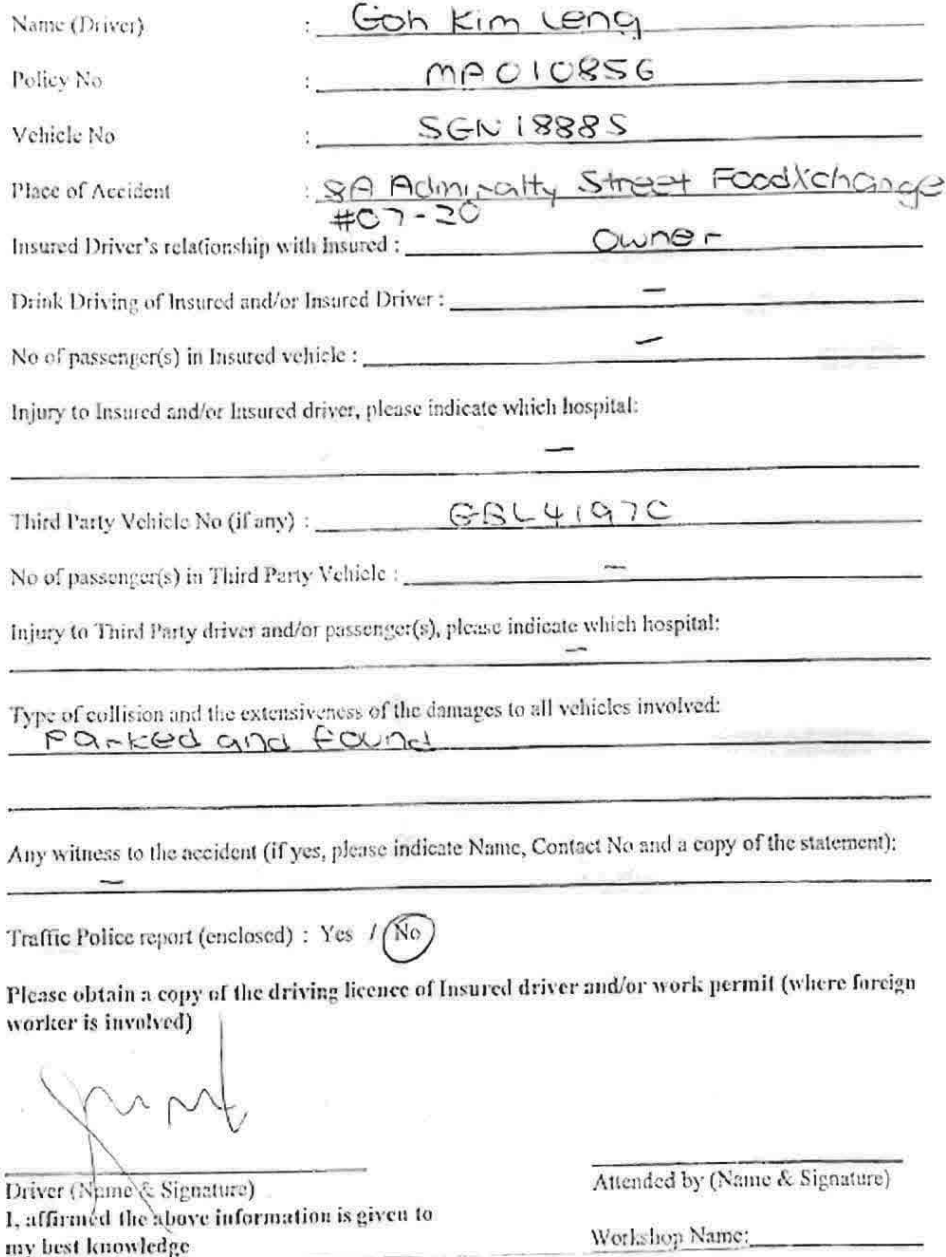 Name (Driver) : Goh Kim Leng
Policy No : MP010856
Vehicle No : SGN 1888S
Place of Accident : 8A Admiralty Street FoodXchange
#07-20
Insured Driver's relationship with Insured : Owner
Drink Driving of Insured and/or Insured Driver : -
No of passenger(s) in Insured vehicle : -
Injury to Insured and/or Insured driver, please indicate which hospital:
-
Third Party Vehicle No (if any) : GBL4197C
No of passenger(s) in Third Party Vehicle : -
Injury to Third Party driver and/or passenger(s), please indicate which hospital:
-
Type of collision and the extensiveness of the damages to all vehicles involved:
Parked and Found
Any witness to the accident (if yes, please indicate Name, Contact No and a copy of the statement):
-
Traffic Police report (enclosed) : Yes / No
Please obtain a copy of the driving licence of Insured driver and/or work permit (where foreign
worker is involved)
Driver (Name & Signature)
Attended by (Name & Signature)
I, affirmed the above information is given to
my best knowledge
Workshop Name: